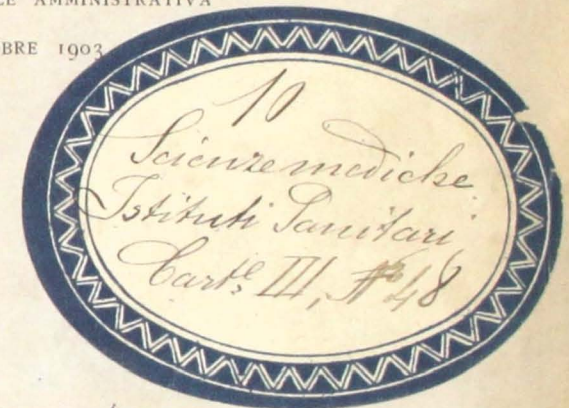 LE AMMINISTRATIVA
BRE 1903
10
Scienze mediche
Istituti Sanitari
Cart.e III, N.o 48